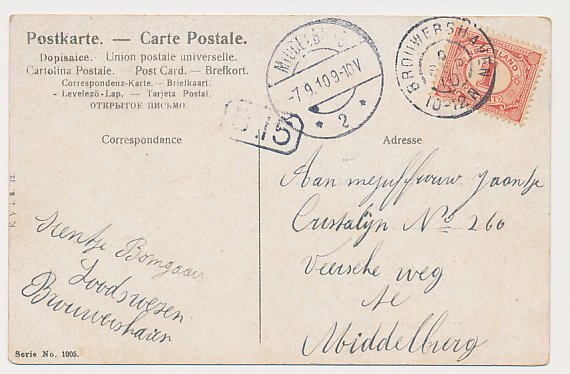 Postkarte. — Carte Postale.
Dopisnice. - Union postale universelle.
Cartolina Postale. Post Card. — Brefkort.
Correspondenz-Karte. — Briefkaart.
- Levelező-Lap. — Tarjeta Postal.
ОТКРЫТОЕ ПИСЬМО
MIDDELBURG
-7.9.10 9-10V
* 2 *
BROUWERSHAVEN
10-12
Correspondance
Adresse
Aan mejuffrouw Jaantje
Crustalijn No 260
Veersche weg
te
Middelburg
Bomgaars
Brouwershaven
K. V. i. B. 12.
Serie No. 1005.